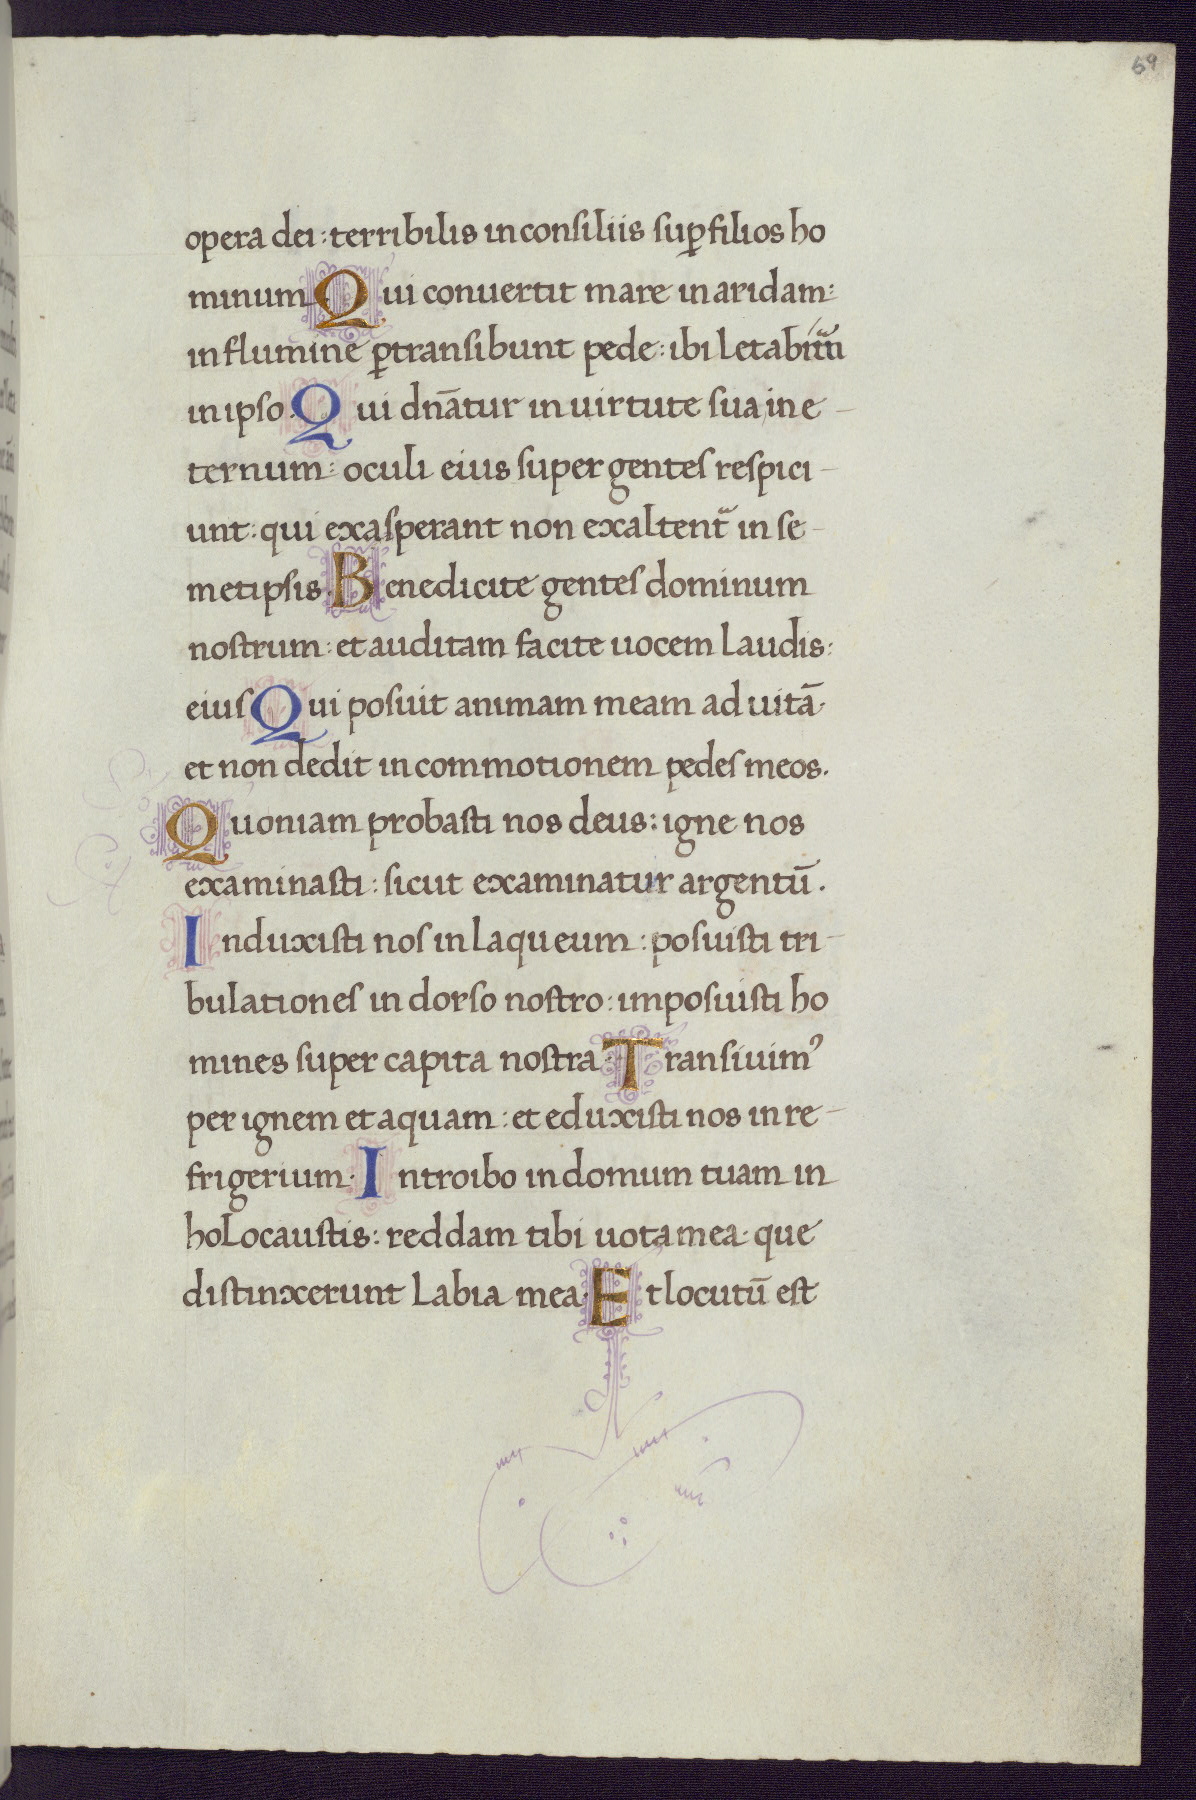 69
opera dei: terribilis in consiliis sup̱ filios ho
minum. Qui conuertit mare in aridam:
in flumine p̱transibunt pede: ibi letabim̃
in ipso. Qui dn̄atur in uirtute sua in e-
ternum: oculi eius super gentes respici-
unt: qui exasperant non exaltent᷑ in se-
metipsis. Benedicite gentes dominum
nostrum: et auditam facite uocem laudis:
eius Qui posuit animam meam ad uitā.
et non dedit in commotionem pedes meos.
Quoniam probasti nos deus: igne nos
examinasti: sicut examinatur argentū.
Induxisti nos in laqueum: posuisti tri-
bulationes in dorso nostro: imposuisti ho
mines super capita nostra. Transiuimꝰ
per ignem et aquam: et eduxisti nos in re-
frigerium. Introibo in domum tuam in
holocaustis: reddam tibi uota mea. que
distinxerunt labia mea. Et locutū est